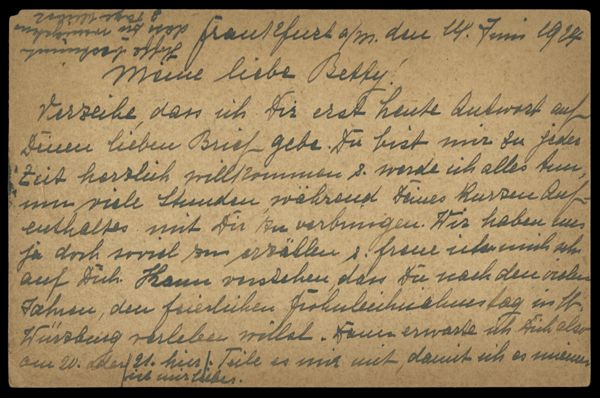 Frankfurt a/m. den 14. Juni 1924
Meine liebe Betty!
Verzeihe dass ich Dir erst heute Antwort auf
Deinen lieben Brief gebe. Du bist mir zu jeder
Zeit herzlich willkommen & werde ich alles tun,
um viele Stunden während Deines kurzen Auf-
enthaltes mit Dir zu verbringen. Wir haben uns
ja doch soviel zu erzählen & freue ich mich sehr
auf Dich. Kann verstehen, dass Du nach den vielen
Jahren, den feierlichen Frohnleichnamstag in
Würzburg verleben willst. Dann erwarte ich Dich also
am 20. oder 21. hier. Teile es mir mit, damit ich es
ist mir lieber.